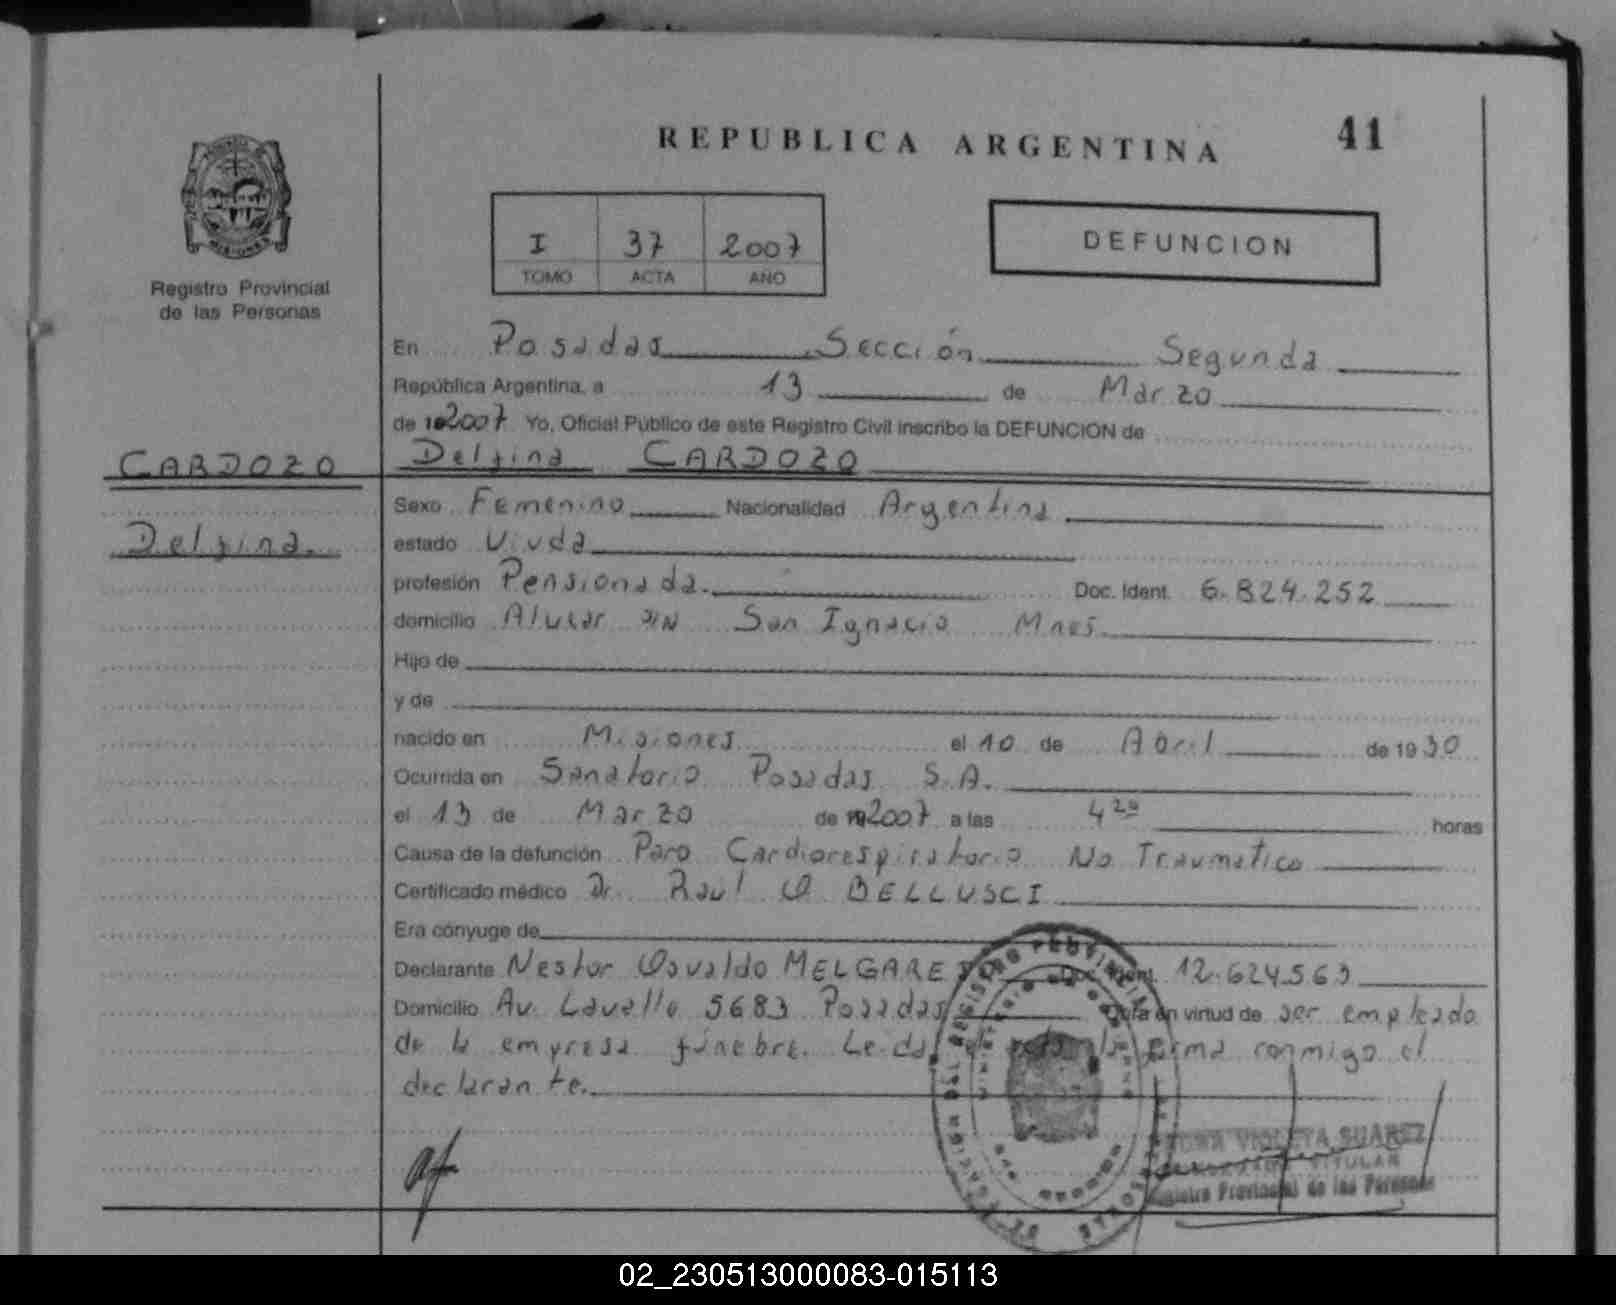 REPUBLICA ARGENTINA
41
MISIONES
Registro Provincial
de las Personas
I 37 2007
TOMO ACTA AÑO
DEFUNCION
En Posadas Sección Segunda
República Argentina, a 13 de Marzo
de 2007 Yo, Oficial Público de este Registro Civil inscribo la DEFUNCION de
CARDOZO
Delfina CARDOZO
Delfina
Sexo Femenino Nacionalidad Argentina
estado Viuda
profesión Pensionada. Doc. Ident. 6.824.252
domicilio Alvear S/N San Ignacio Mnes.
Hijo de
y de
nacido en Misiones el 10 de Abril de 1930
Ocurrida en Sanatorio Posadas S.A.
el 13 de Marzo de 2007 a las 4 20 horas
Causa de la defunción Paro Cardiorespiratorio No Traumatico
Certificado médico Dr. Raúl O BELLUSCI
Era cónyuge de
Declarante Nestor Osvaldo MELGARE Doc. Ident. 12.624.563
Domicilio Av. Lavalle 5683 Posadas Obra en virtud de ser empleado
de la empresa fúnebre. Leida el acta la firma conmigo el
declarante.
REGISTRO PROVINCIAL DE LAS PERSONAS
VIOLETA SUAREZ
TITULAR
Registro Provincial de las Personas
02_230513000083-015113